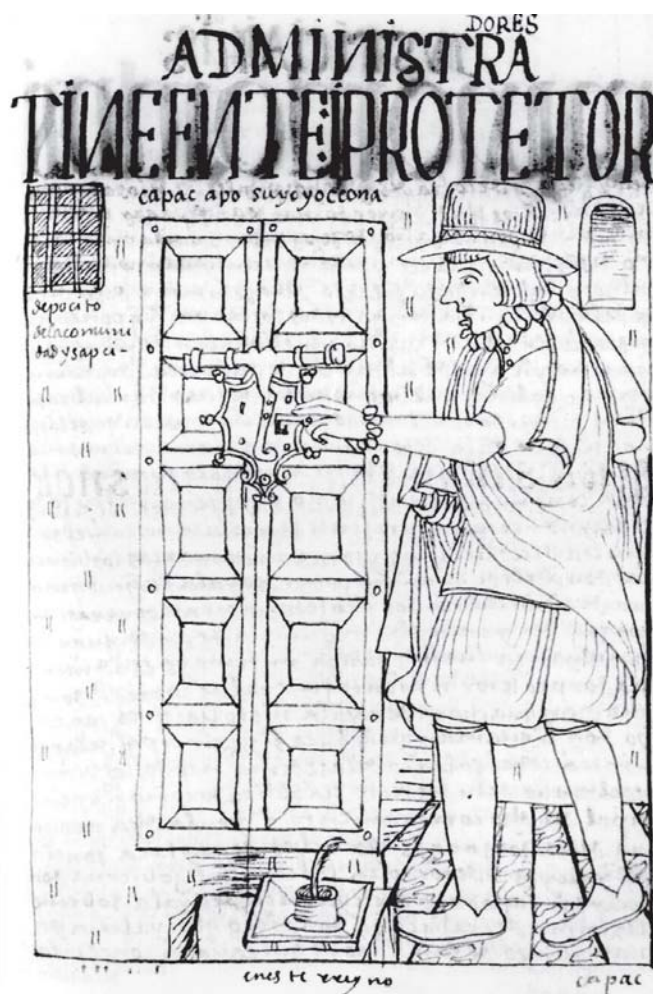 DORES
ADMINISTRA
TINEENTE:IPROTETOR
capac apo suyoyoccona
depocito
delacomuni
dad y sapci-
enes te rreyno
capac